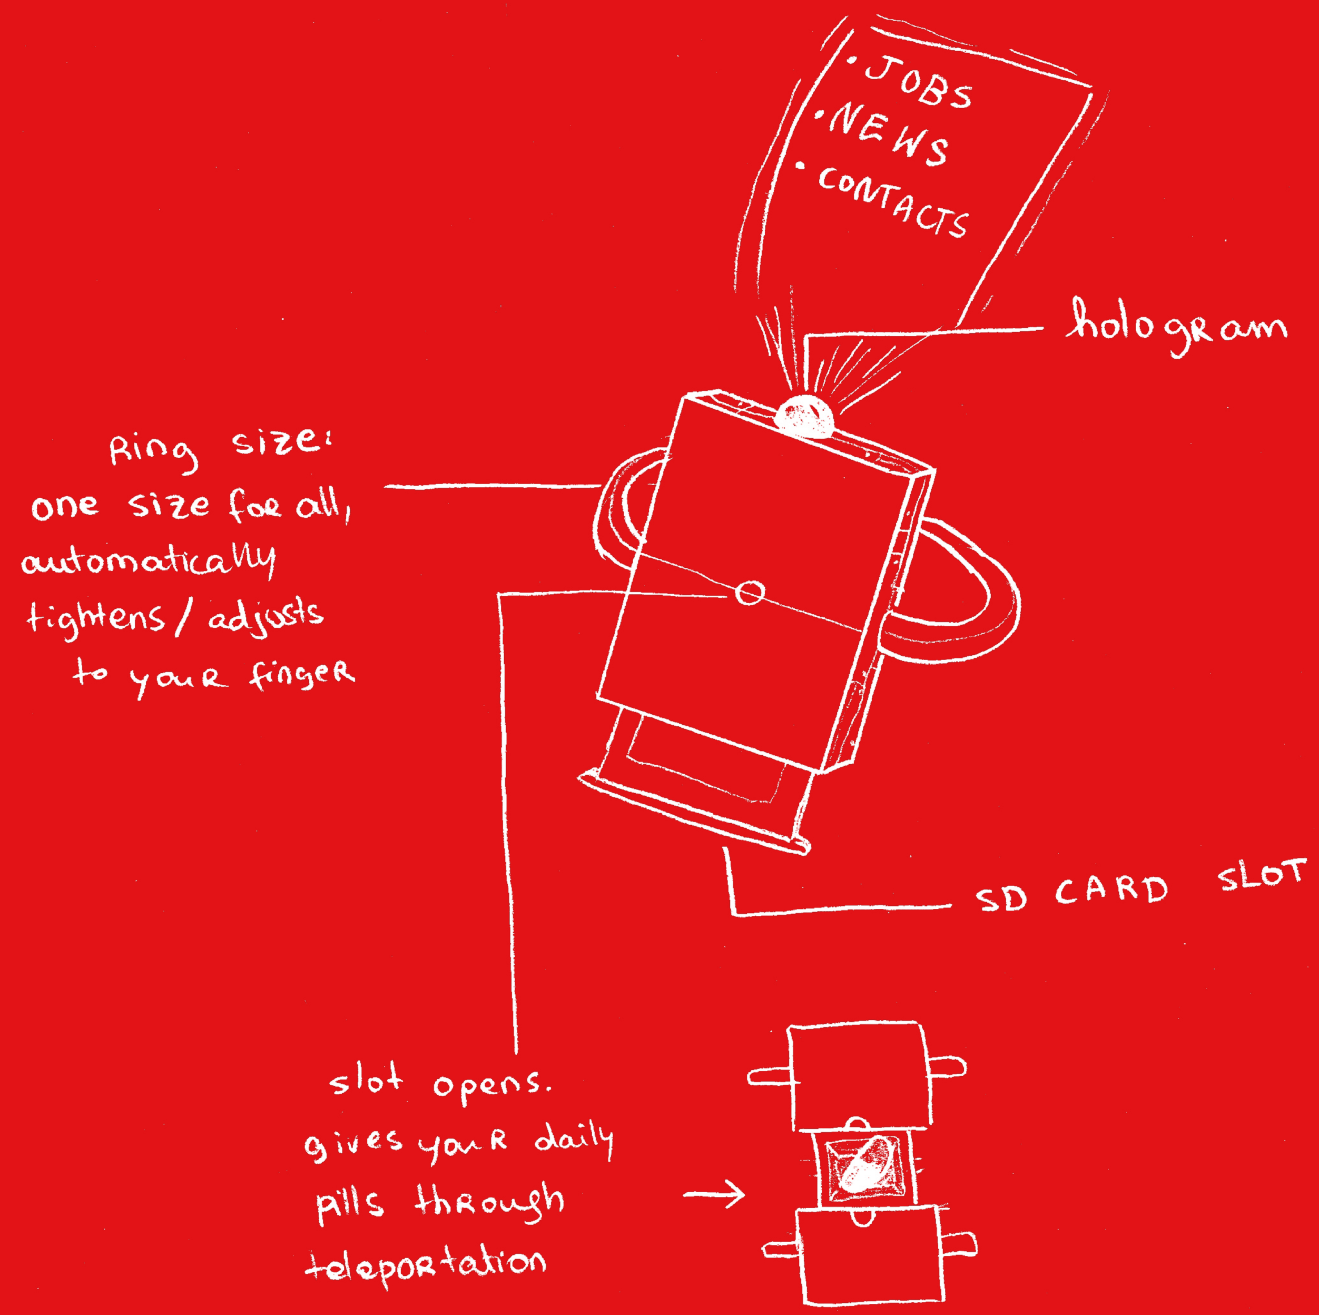 • JOBS
• NEWS
• CONTACTS
hologram
Ring size:
one size for all,
automatically
tightens / adjusts
to your finger
SD CARD SLOT
slot opens.
gives your daily
pills through
teleportation